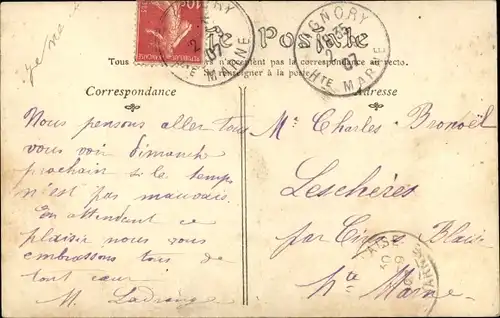 10c
IGNORY
HTE MARNE
Carte Postale
Tous
pas la correspondance au recto.
Se renseigner à la poste
Correspondance
Adresse
Nous pensons aller tous
vous voir dimanche
prochain si le temps
n'est pas mauvais.
En attendant ce
plaisir nous vous
embrassons tous de
tout cœur
M. Ladrange
Mr Charles Bronoël
Leschères
par Cirey Blaise
Hte Marne